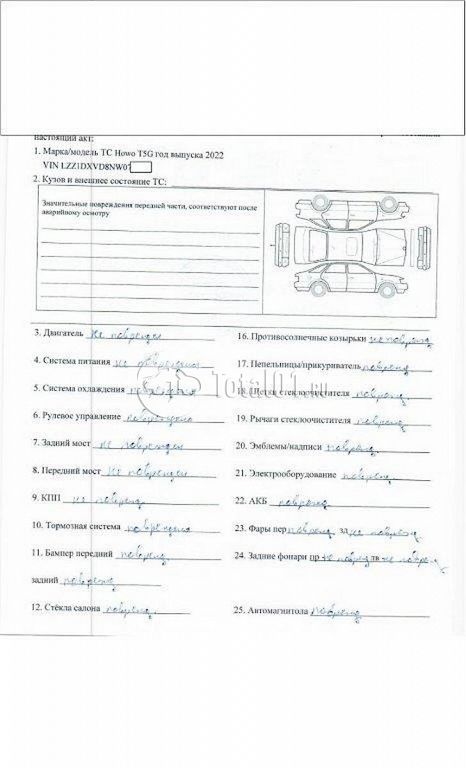 настоящий акт:
1. Марка/модель ТС Howo T5G год выпуска 2022
VIN LZZ1DXVD8NW0
2. Кузов и внешнее состояние ТС:
Значительные повреждения передней части, соответствуют после
аварийному осмотру
3. Двигатель не поврежден
16. Противосолнечные козырьки не поврежд
4. Система питания не повреждена
17. Пепельницы/прикуриватель поврежд.
5. Система охлаждения повреждена
18. Щетка стеклоочистителя поврежд.
6. Рулевое управление повреждено
19. Рычаги стеклоочистителя поврежд.
7. Задний мост не поврежден
20. Эмблемы/надписи поврежд.
8. Передний мост не поврежден
21. Электрооборудование поврежд.
9. КПП не поврежд.
22. АКБ поврежд
10. Тормозная система повреждена
23. Фары пер поврежд. зд не поврежд.
11. Бампер передний поврежд.
24. Задние фонари пр не поврежд лв не поврежд.
задний поврежд
12. Стёкла салона поврежд.
25. Автомагнитола поврежд.
Total01.ru